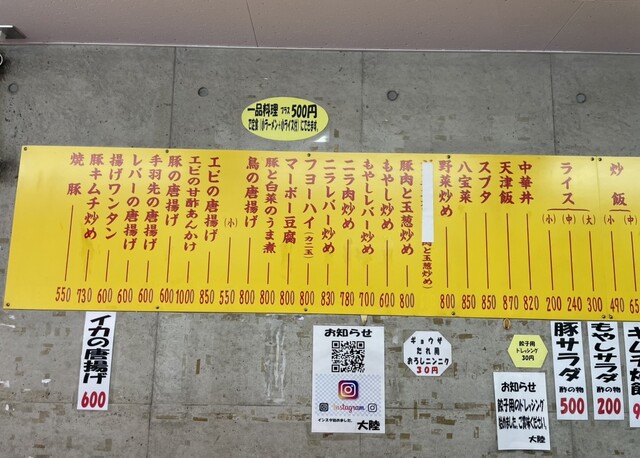 一品料理 プラス 500円
で定食(小ラーメン+小ライス付)にできます。
炒飯
(小) 490
(中)
ライス
(大) 300
(中) 240
(小) 200
中華丼 820
天津飯 870
スブタ 850
八宝菜 850
野菜炒め 800
肉と玉葱炒め)
豚肉と玉葱炒め 800
もやし炒め 600
もやしレバー炒め 700
ニラ肉炒め 780
ニラレバー炒め 830
・フヨーハイ(カニ玉) 800
マーボー豆腐 800
豚と白菜のうま煮 800
鳥の唐揚げ 800
(小) 550
エビの唐揚げ 850
エビの甘酢あんかけ 1000
豚の唐揚げ 600
手羽先の唐揚げ 600
レバーの唐揚げ 600
揚げワンタン 600
豚キムチ炒め 730
焼豚 550
イカの唐揚げ 600
お知らせ
Instagram
インスタ始めました。
大陸
ギョウザ
たれ用
おろしニンニク
30円
餃子用
ドレッシング
30円
お知らせ
餃子用のドレッシング
始めました。ご賞味ください。
大陸
豚サラダ
酢の物
500
もやしサラダ
酢の物
200